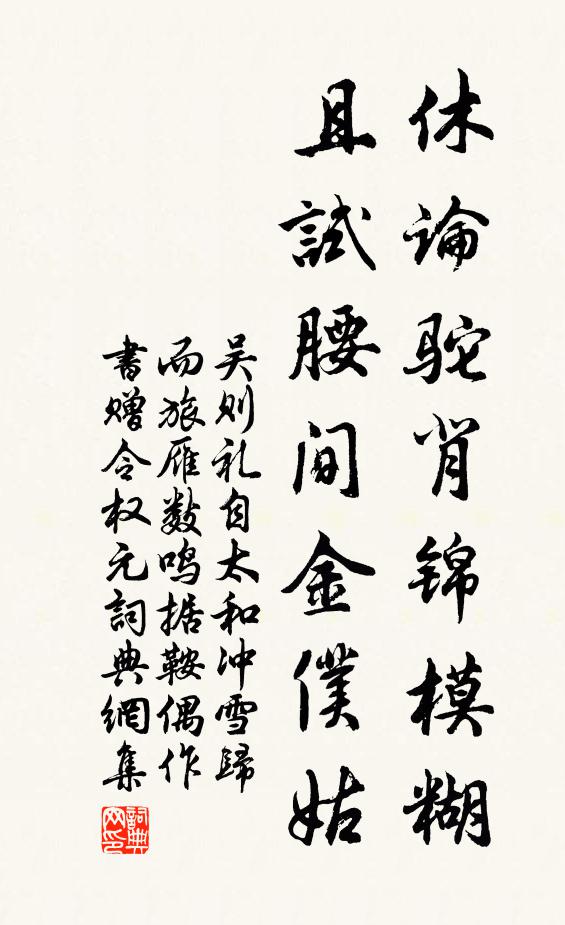 休论駝背锦模糊
且試腰间金僕姑
吴则礼自太和冲雪歸
而旅雁数鸣据鞍偶作
書赠令权元詞典網集
詞典
网印